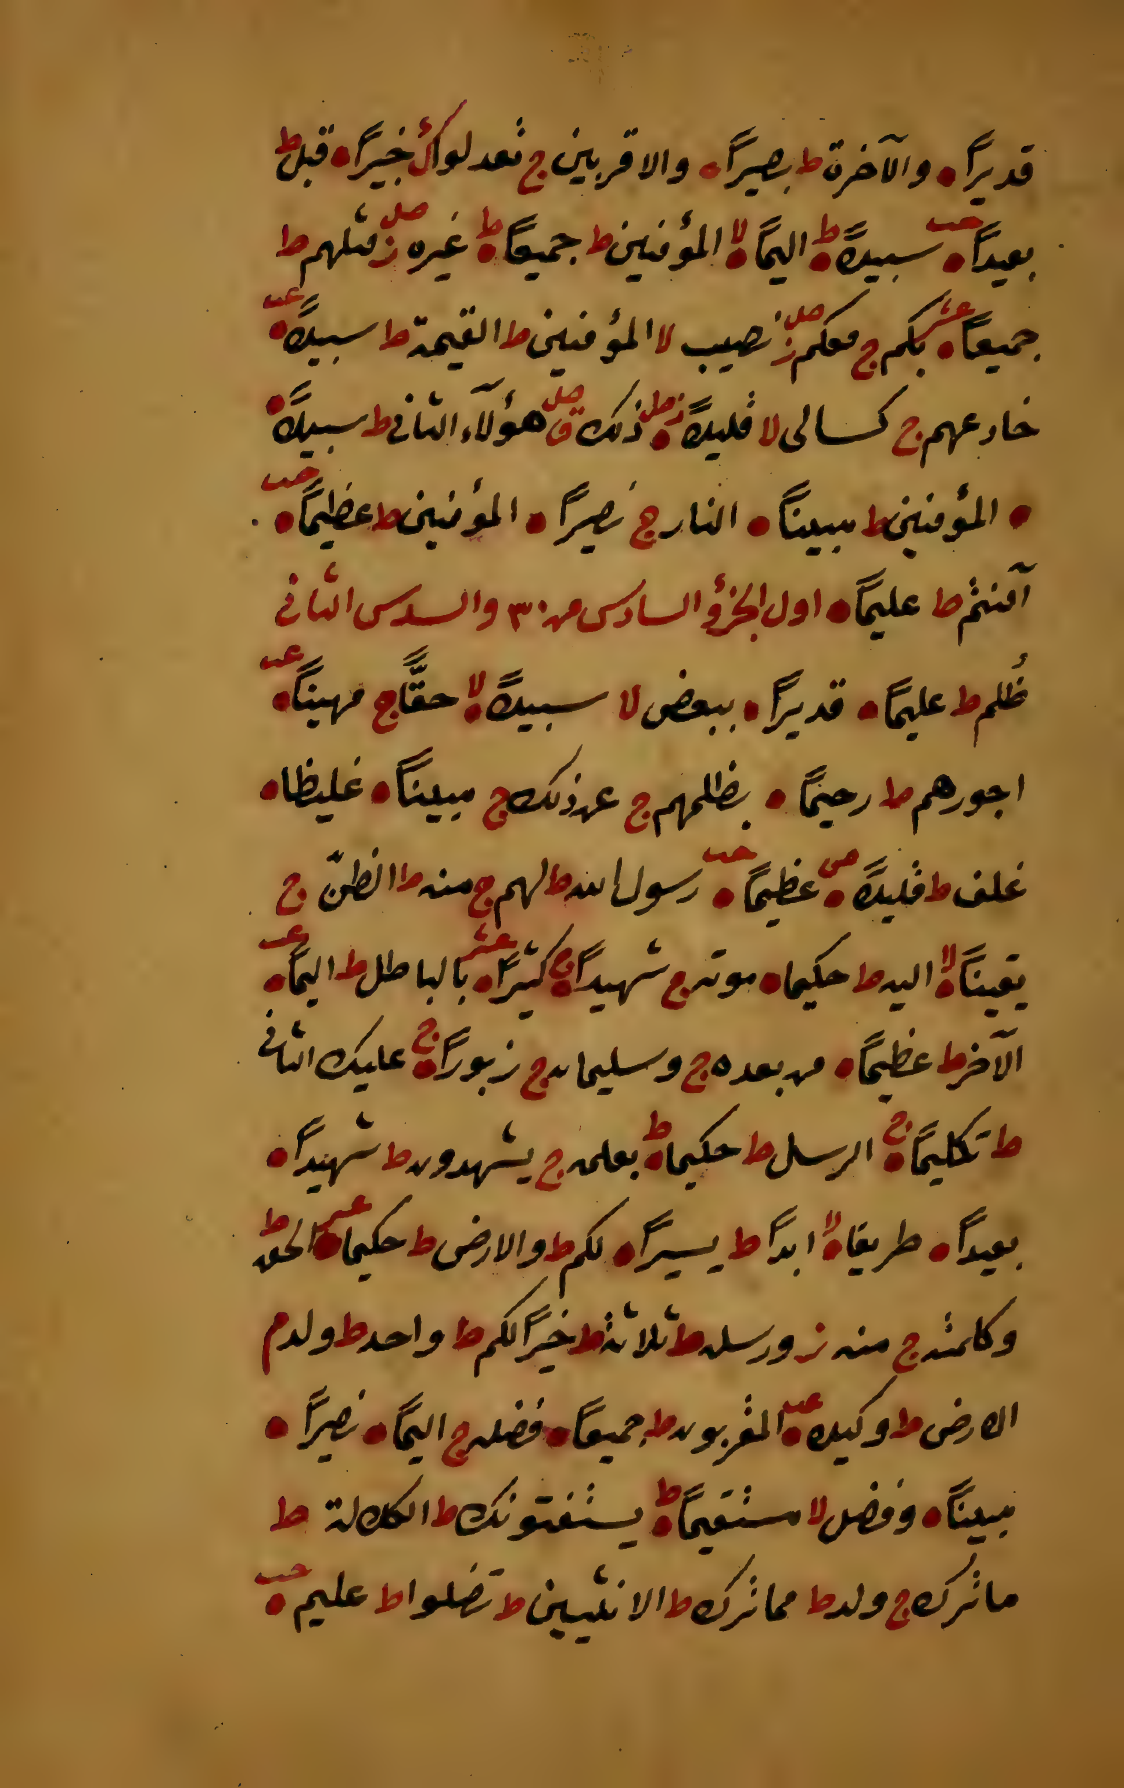 قديرًا • والآخرة ط بصيرًا • والاقربين ج تعدلوا ك خبيرًا • قبل ط
بعيدًا • حب سبيلاً • ط اليمًا • لا المؤمنين ط جميعًا • ط غيره ز صل مثلهم ط
جميعًا • عشر بكم ج معكم ز صل نصيب لا المؤمنين ط القيمة ط سبيلاً • عب
خادعهم ج كسالى لا قليلاً • ز صل ذلك ق صل هؤلآء الثانى ط سبيلاً •
• المؤمنين ط مبينًا • النار ج نصيرًا • المؤمنين ط عظيمًا • حب
آمنتم ط عليمًا • اول الجزؤ السادس من ٣٠ والسدس الثانى
ظُلم ط عليمًا • قديرًا • ببعض لا سبيلاً • لا حقًّا ج مهينًا • عب
اجورهم ط رحيمًا • بظلمهم ج عن ذلك ج مبينًا • غليظا •
غلف ط قليلاً • ص عظيمًا • حب رسول الله ط لهم ج منه ط الظنّ ج
يقينًا • لا اليه ط حكيما • موته ج شهيدًا • ج كثيرًا • عشر بالباطل ط اليمًا • عب
الآخر ط عظيمًا • من بعده ج وسليمان ج زبورًا • ج عليك الثانى
ط تكليمًا • ج الرسل ط حكيما • ط بعلمه ج يشهدون ط شهيدًا •
بعيدًا • طريقا • لا ابدًا ط يسيرًا • لكم ط والارض ط حكيما • عشر الحق ط
وكلمته ج منه ز ورسله ط ثلاثة ط خيرًا لكم ط واحد ط ولد م
الارض ط وكيلا • عب المقربون ط جميعًا • فضله ج اليمًا • نصيرًا •
مبينًا • وفضل لا مستقيمًا • ط يستفتونك ط الكلالة ط
ما ترك ج ولد ط مما ترك ط الانثيين ط تضلوا ط عليم • حب